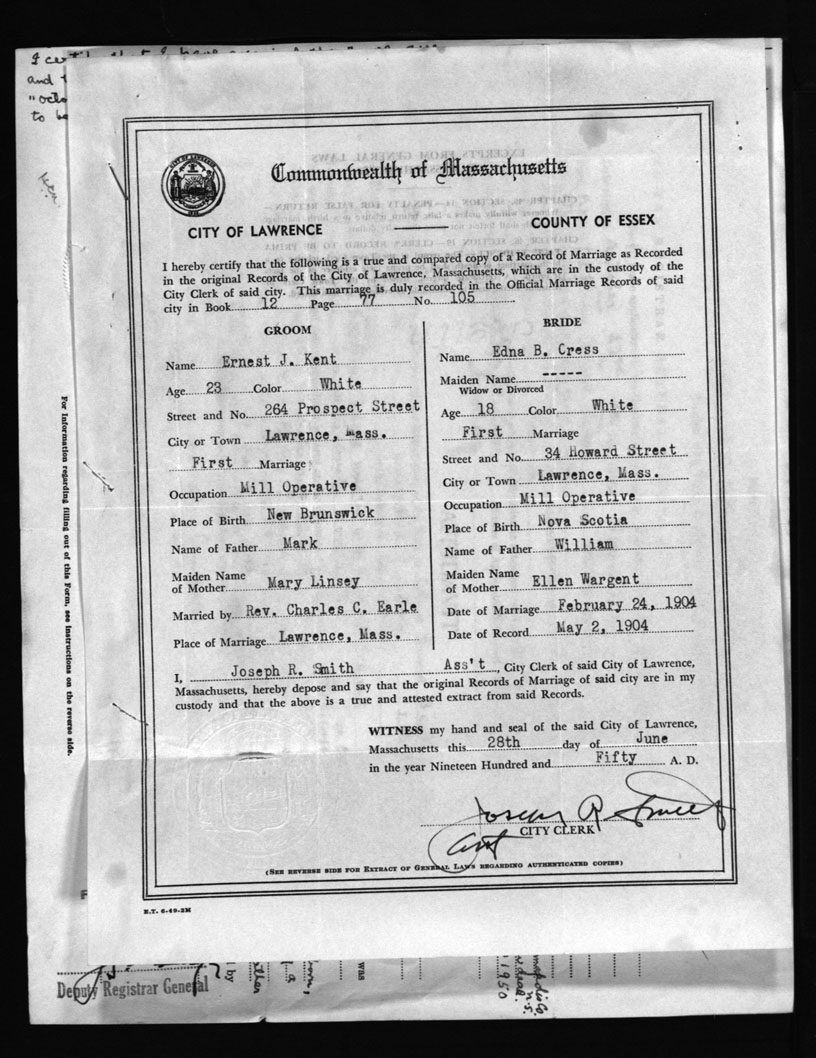 I
and
"
to be
Commonwealth of Massachusetts
CITY OF LAWRENCE
COUNTY OF ESSEX
I hereby certify that the following is a true and compared copy of a Record of Marriage as Recorded
in the original Records of the City of Lawrence, Massachusetts, which are in the custody of the
City Clerk of said city. This marriage is duly recorded in the Official Marriage Records of said
city in Book 12 Page 77 No. 105
GROOM
Name Ernest J. Kent
Age 23 Color White
Street and No. 264 Prospect Street
City or Town Lawrence, Mass.
First Marriage
Occupation Mill Operative
Place of Birth New Brunswick
Name of Father Mark
Maiden Name
of Mother Mary Linsey
Married by Rev. Charles C. Earle
Place of Marriage Lawrence, Mass.
BRIDE
Name Edna B. Cress
Maiden Name -----
Widow or Divorced
Age 18 Color White
First Marriage
Street and No. 34 Howard Street
City or Town Lawrence, Mass.
Occupation Mill Operative
Place of Birth Nova Scotia
Name of Father William
Maiden Name
of Mother Ellen Wargent
Date of Marriage February 24, 1904
Date of Record May 2, 1904
I, Joseph R. Smith Ass't, City Clerk of said City of Lawrence,
Massachusetts, hereby depose and say that the original Records of Marriage of said city are in my
custody and that the above is a true and attested extract from said Records.
WITNESS my hand and seal of the said City of Lawrence,
Massachusetts this 28th day of June
in the year Nineteen Hundred and Fifty A. D.
Joseph R. Smith
CITY CLERK
(SEE REVERSE SIDE FOR EXTRACT OF GENERAL LAWS REGARDING AUTHENTICATED COPIES)
E.T. 6-49-2M
For Information regarding filling out of this Form, see Instructions on the reverse side.
Deputy Registrar General
by
was
N.S.
1950